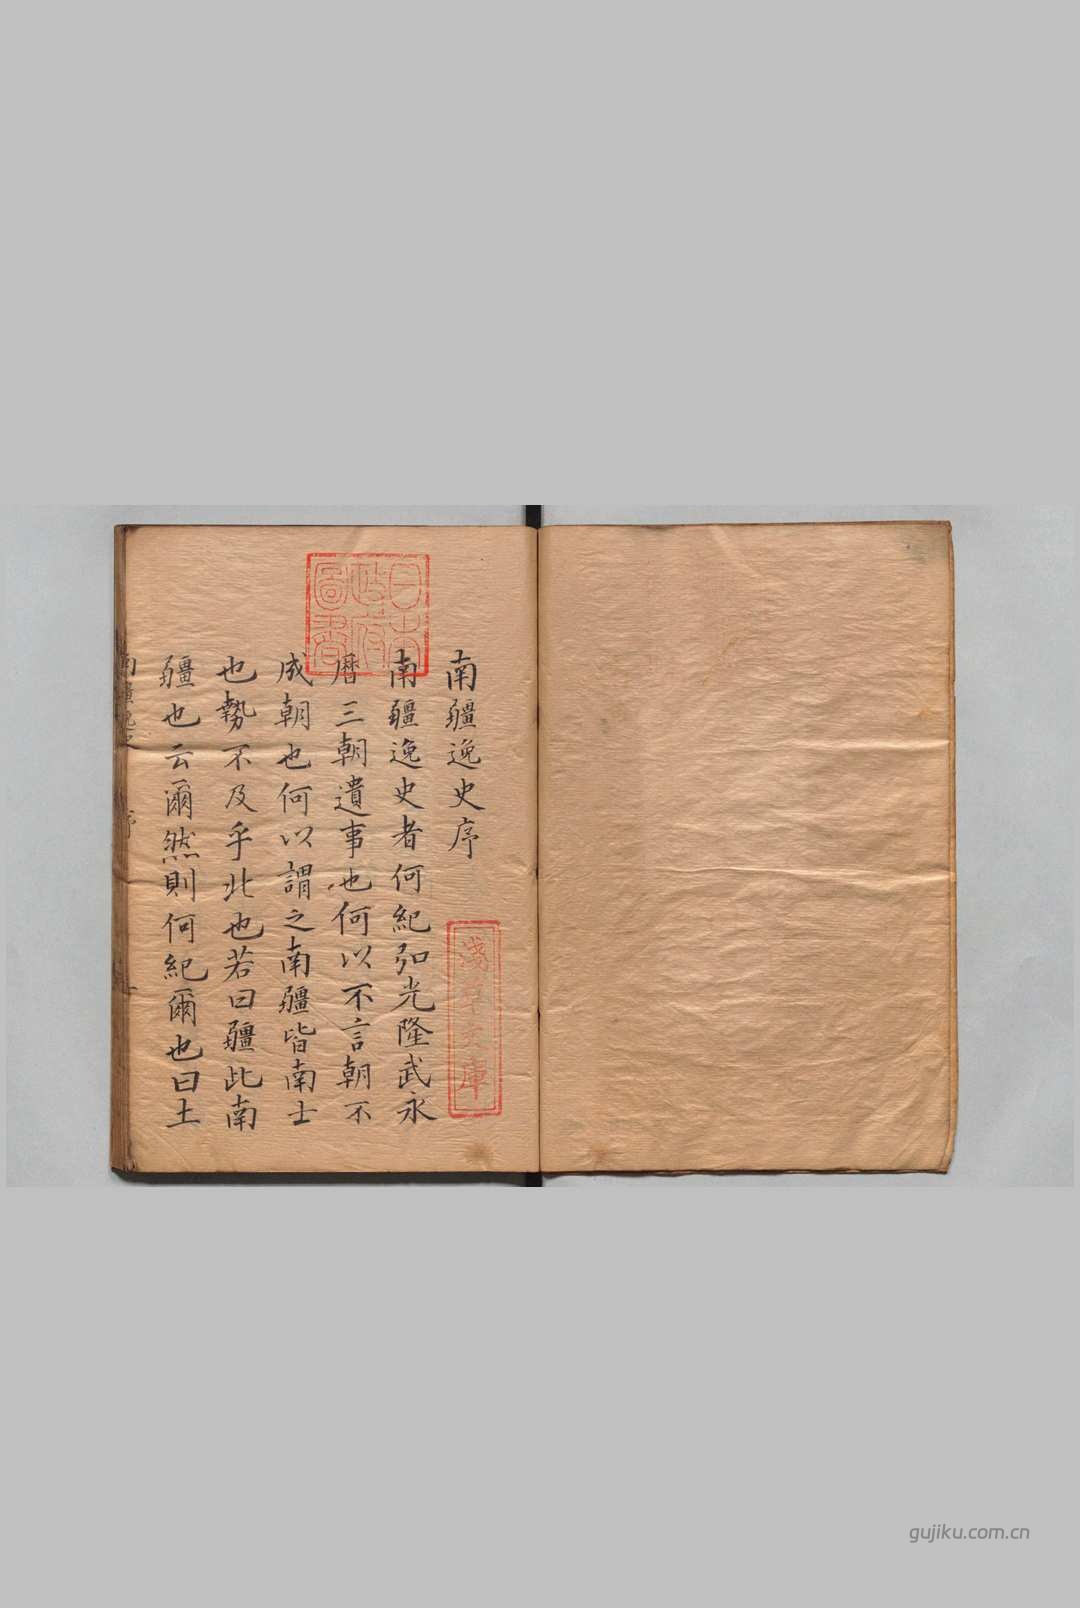 南疆逸史序
南疆逸史者何紀弘光隆武永
曆三朝遺事也何以不言朝不
成朝也何以謂之南疆皆南士
也勢不及乎北也若曰疆此南
疆也云爾然則何紀爾也曰土
南疆逸史
序
日本
政府
圖書
淺草文庫
gujiku.com.cn